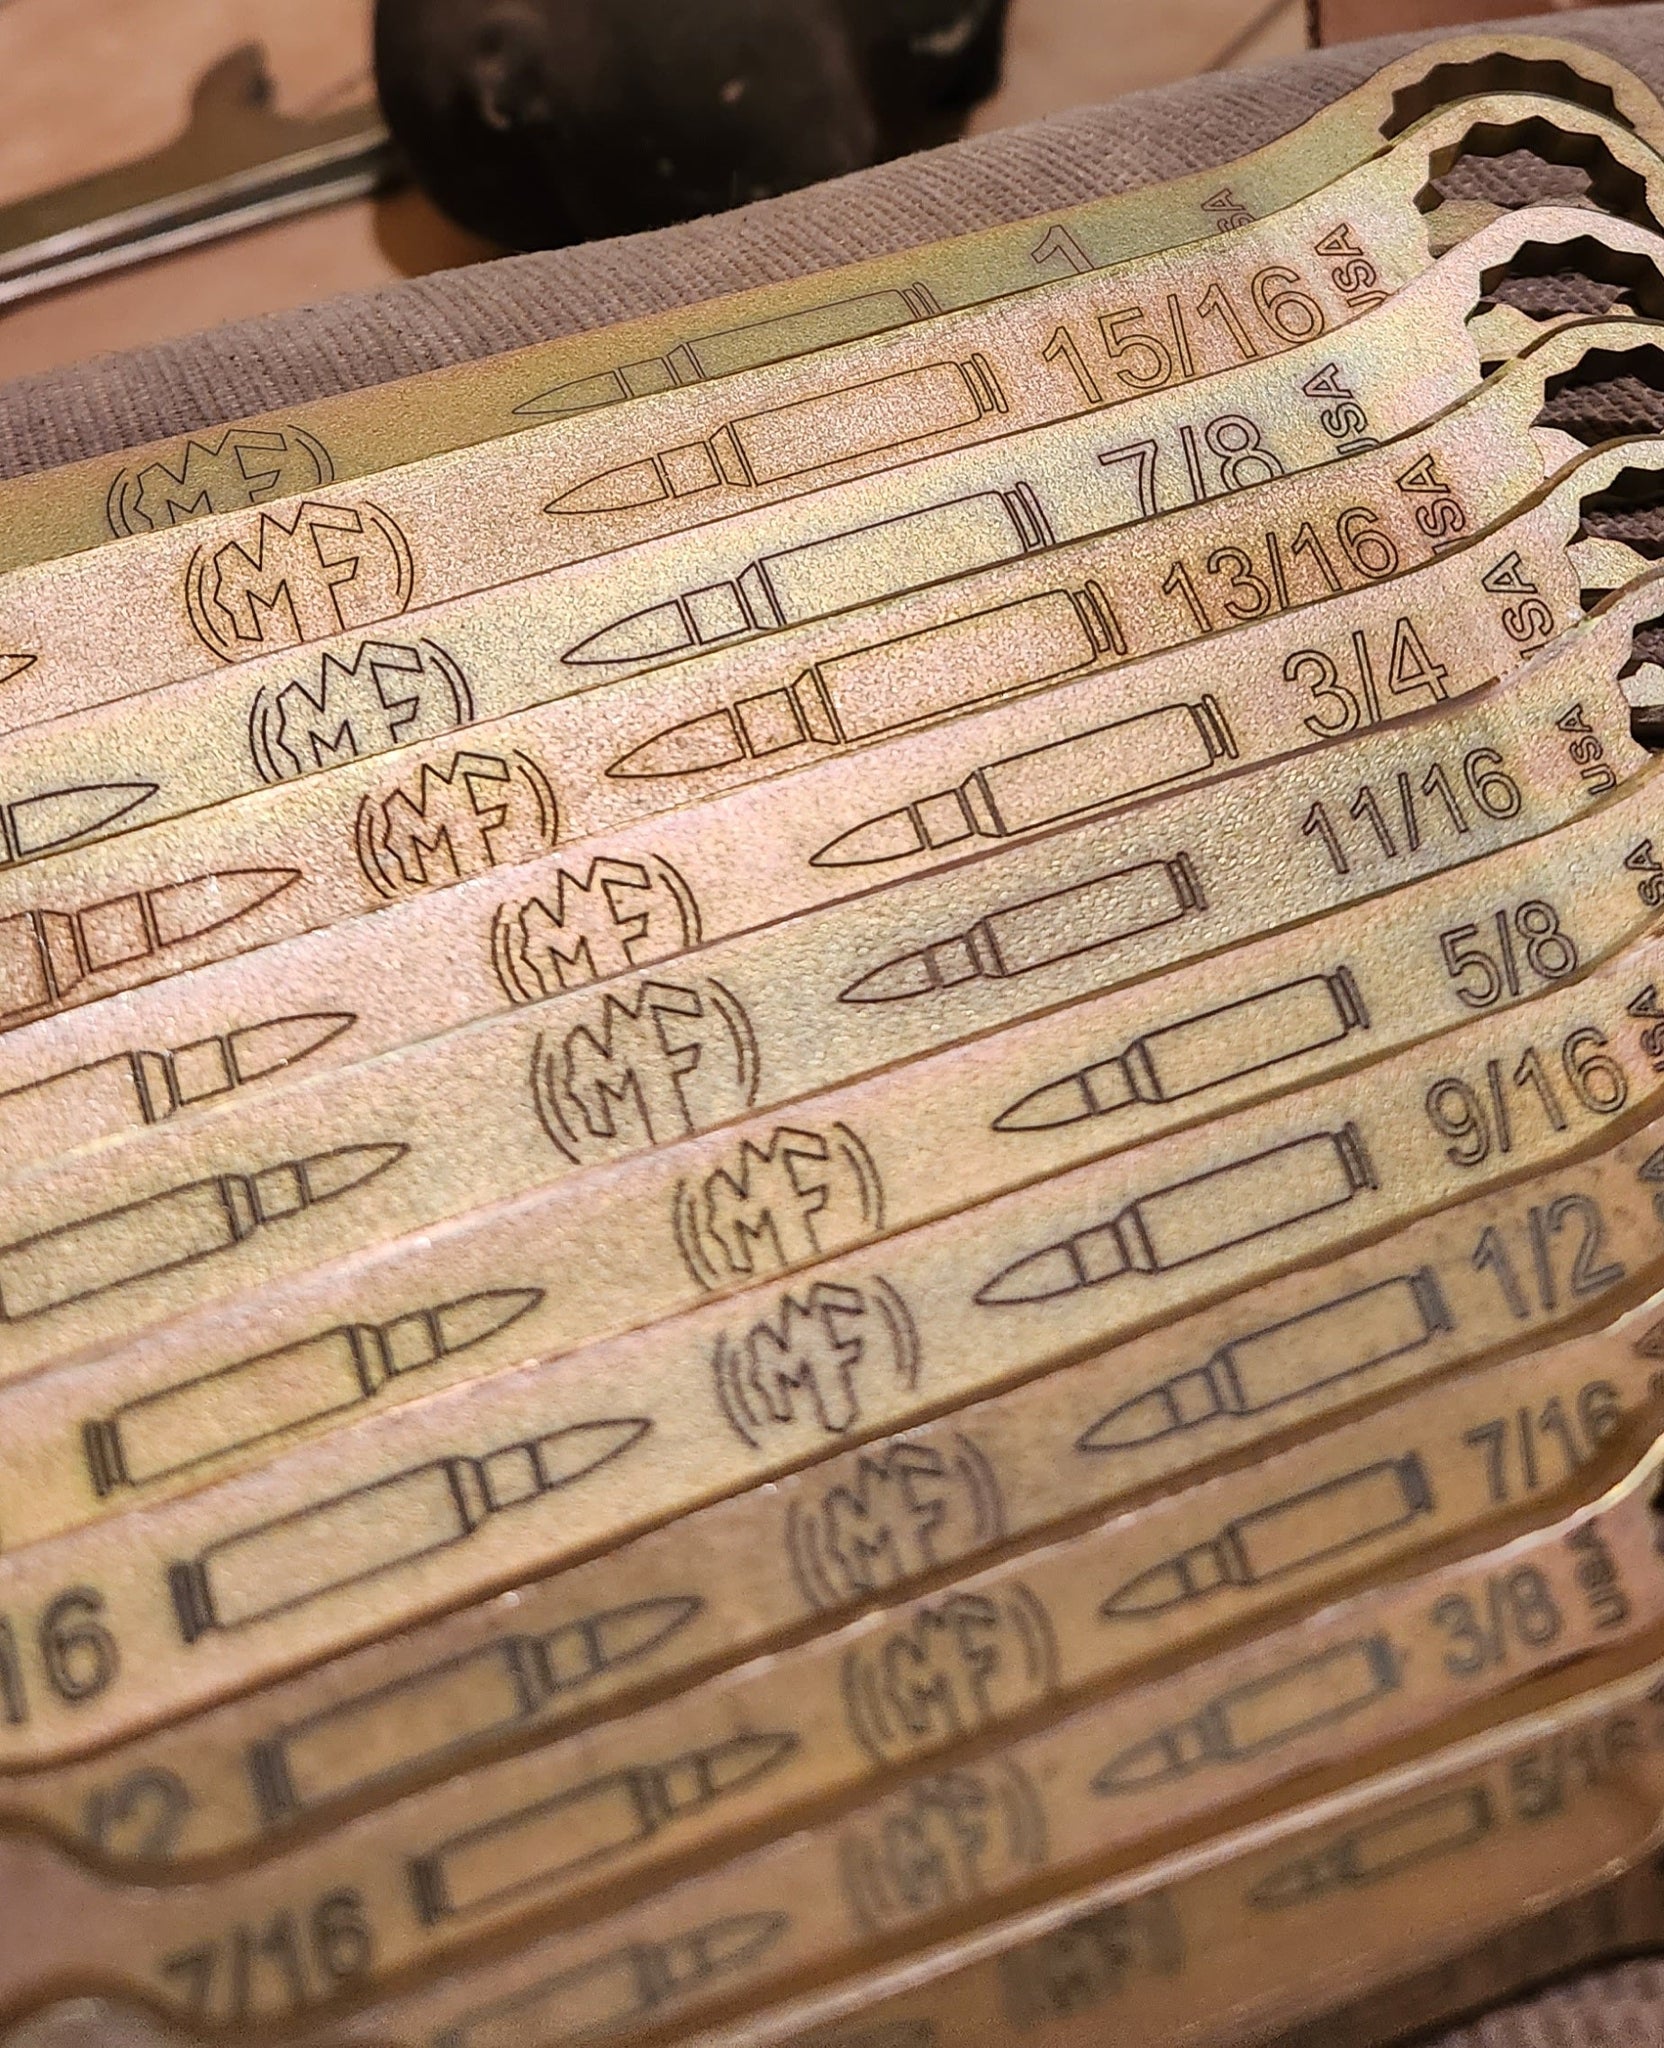 1 USA
MF
15/16 USA
MF
7/8 USA
MF
13/16 USA
MF
3/4 USA
MF
11/16 USA
MF
5/8 USA
MF
9/16 USA
MF
16
1/2
MF
/2
7/16
MF
7/16
3/8 USA
MF
5/16
MF